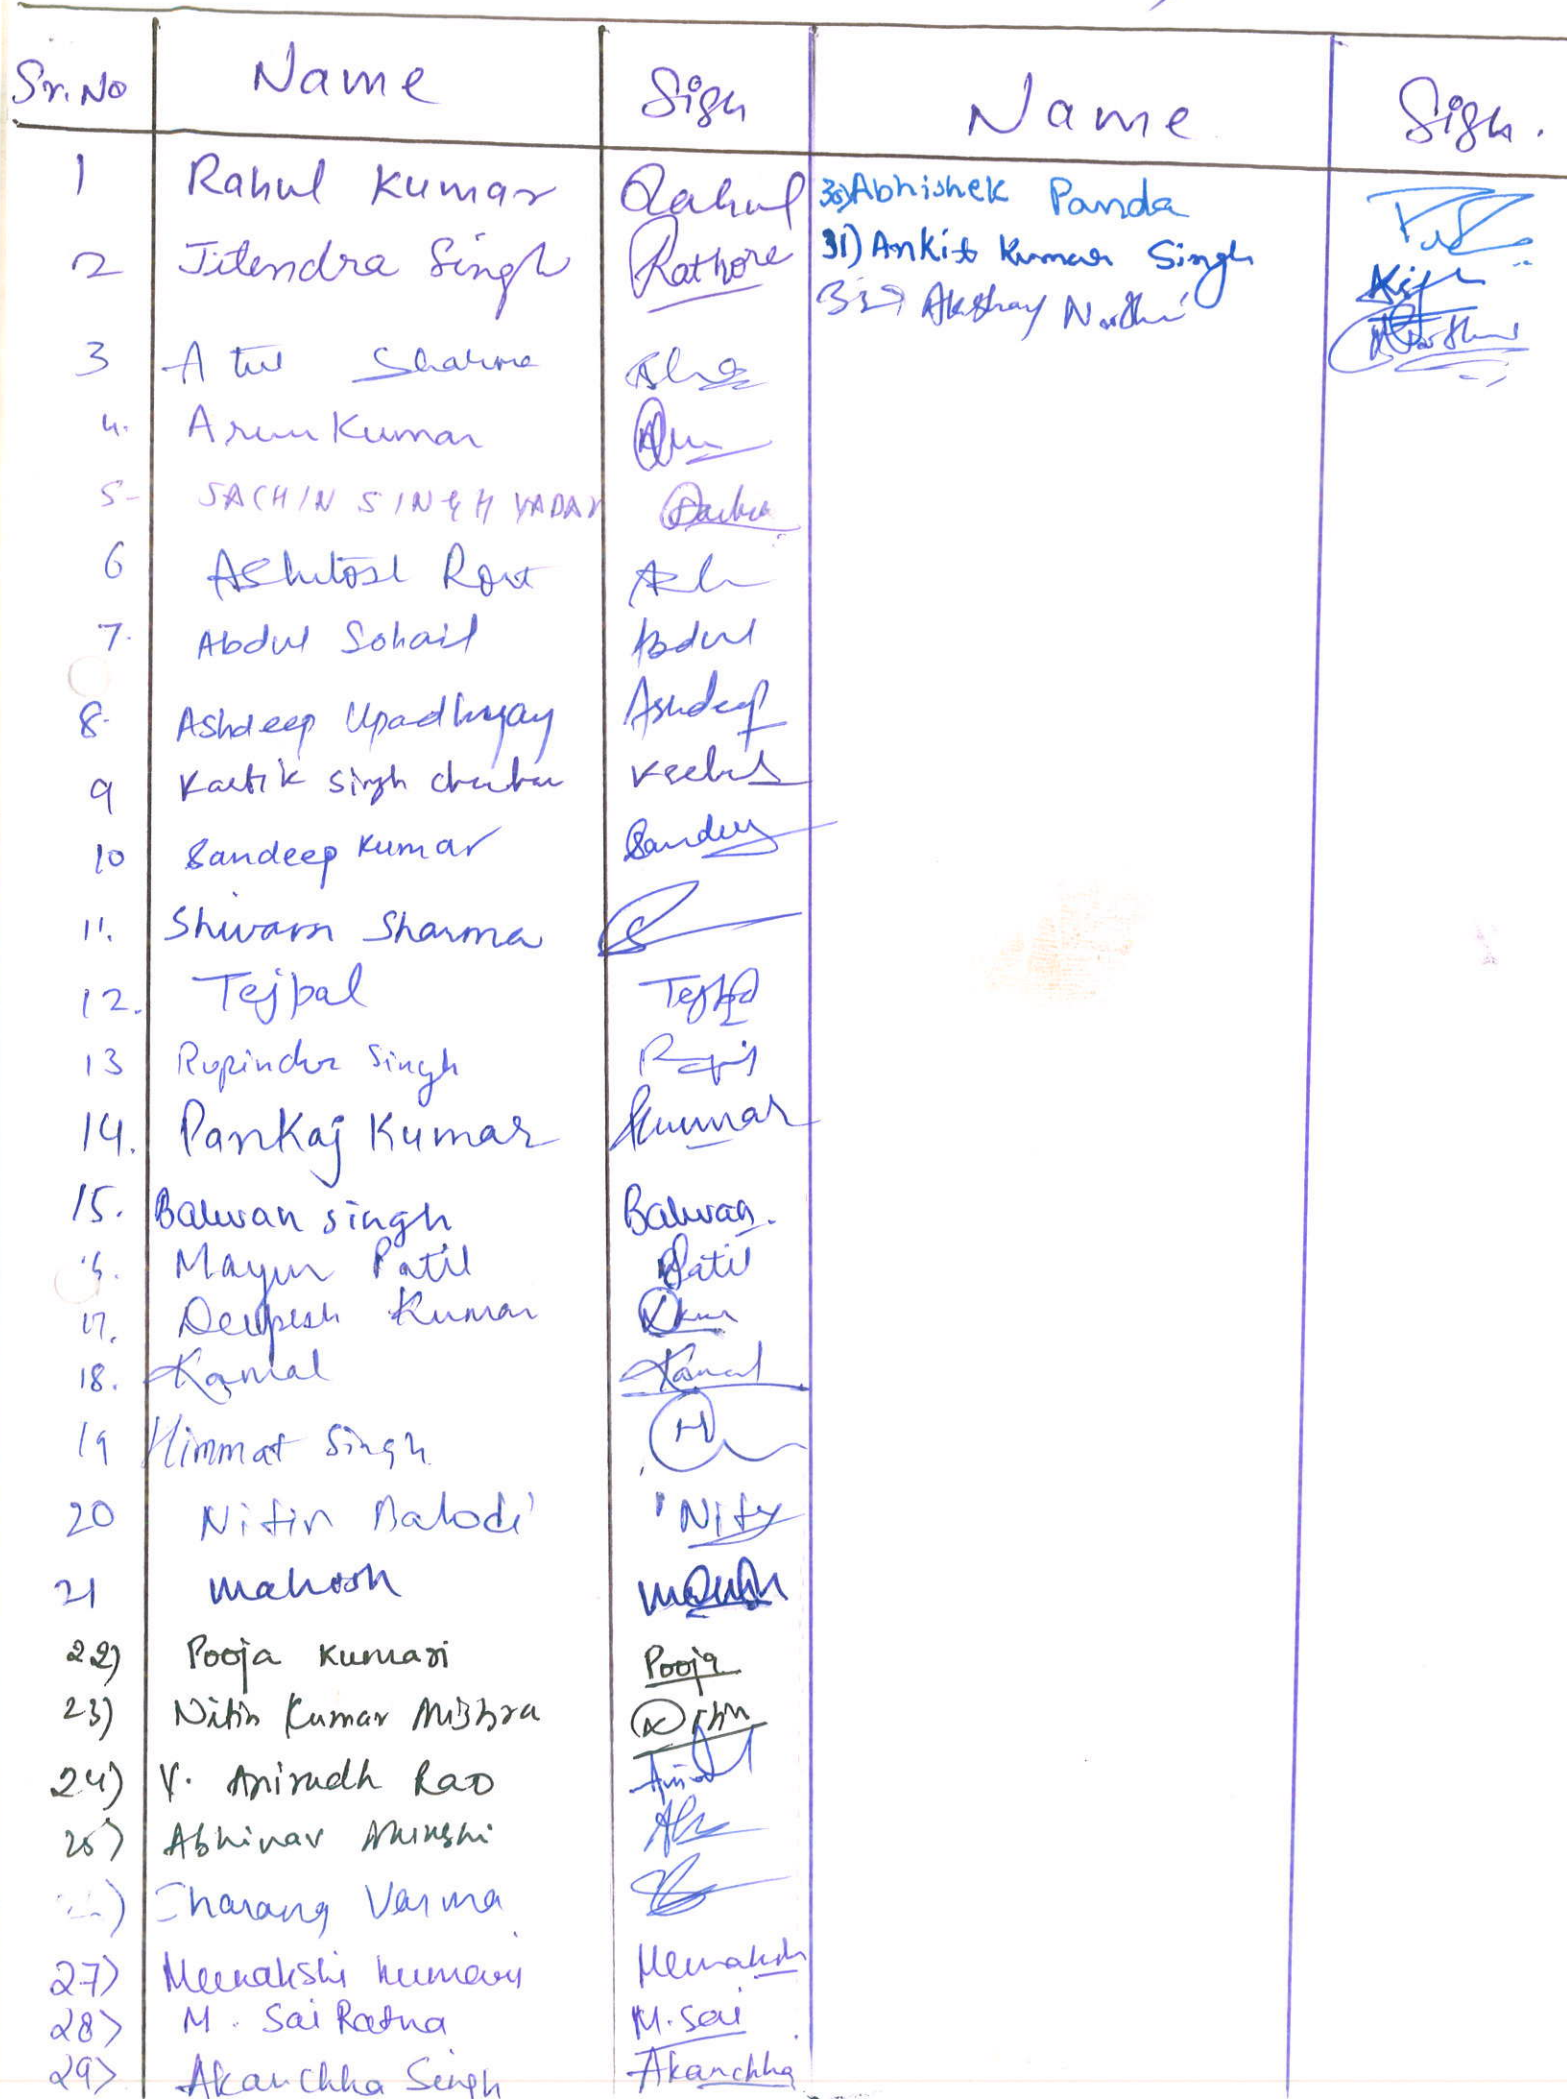 Sr. No Name Sign Name Sign.
1 Rahul Kumar Rahul 30) Abhishek Panda
2 Jitendra Singh Rathore 31) Ankit Kumar Singh
32) Akshay
3 Atul Sharma
4. Arun Kumar
5- SACHIN SINGH YADAV
6 Ashutosh Rout
7. Abdul Sohail Abdul
8. Ashdeep Upadhyay Ashdeep
9 Kartik Singh
10 Sandeep Kumar
11. Shivam Sharma
12. Tejpal
13 Rupinder Singh
14. Pankaj Kumar Kumar
15. Balwan Singh Balwan.
Mayur Patil Patil
17. Kumar
18. Kamal Kamal
19 Himmat Singh H
20 Nitin Balodi
21 Mahesh
22) Pooja Kumari Pooja
23) Nitin Kumar Mishra Nitin
24) Y. Anirudh Rao
25) Abhinav
Charang Varma
27) Meenakshi Kumari
28) M. Sai Ratna M. Sai
29) Akanchha Singh Akanchha